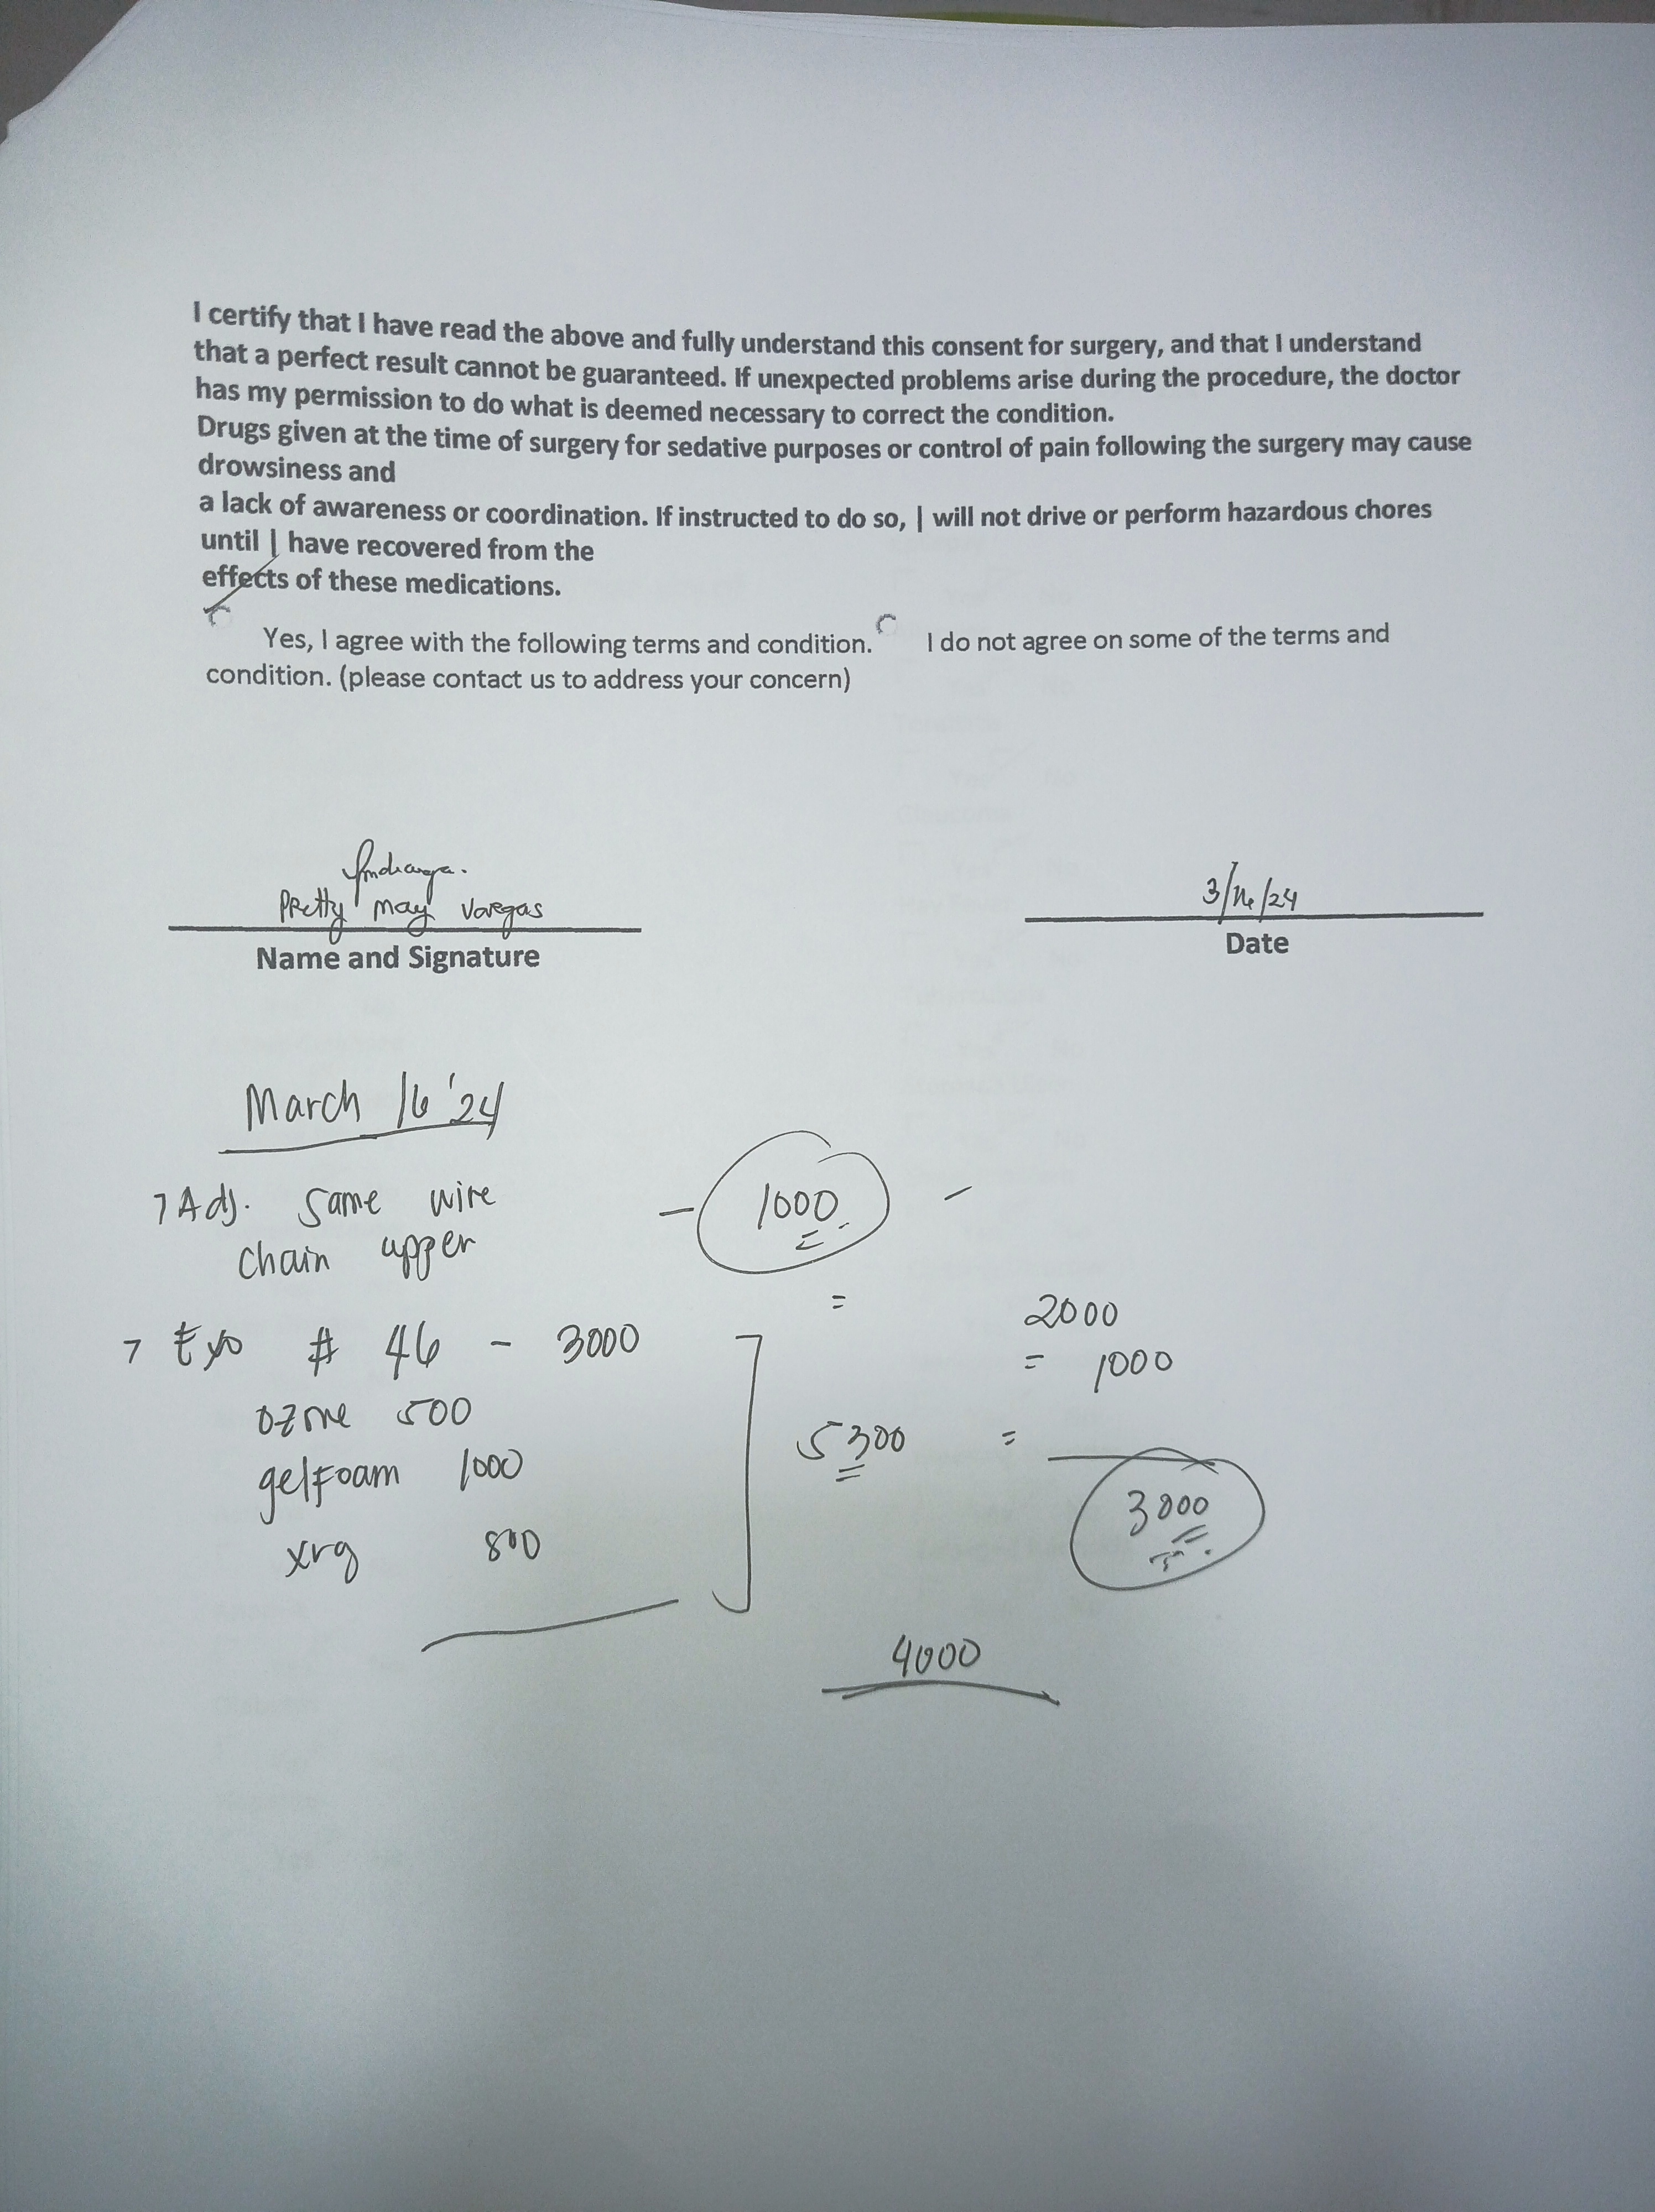 I certify that I have read the above and fully understand this consent for surgery, and that I understand
that a perfect result cannot be guaranteed. If unexpected problems arise during the procedure, the doctor
has my permission to do what is deemed necessary to correct the condition.
Drugs given at the time of surgery for sedative purposes or control of pain following the surgery may cause
drowsiness and
a lack of awareness or coordination. If instructed to do so, | will not drive or perform hazardous chores
until | have recovered from the
effects of these medications.
Yes, I agree with the following terms and condition. I do not agree on some of the terms and
condition. (please contact us to address your concern)
Pretty may Vargas
3/16/24
Name and Signature
Date
March 16 '24
Adj. Same wire - 1000 -
chain upper
=
2000
# 46 - 3000
= 1000
ozone 500
5300 =
gelfoam 1000
3000
xry 800
4000